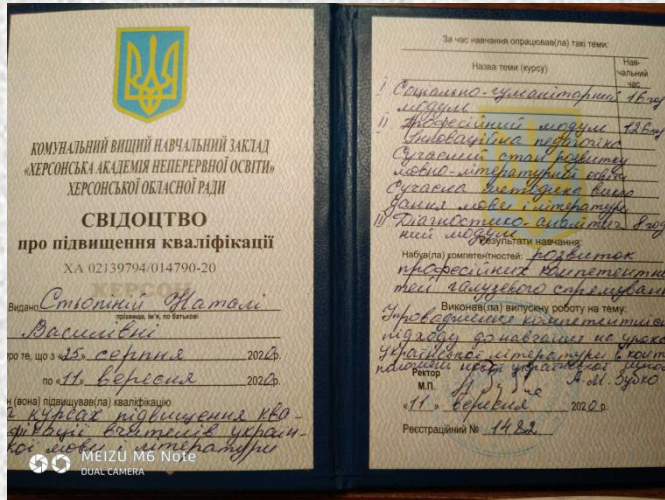 КОМУНАЛЬНИЙ ВИЩИЙ НАВЧАЛЬНИЙ ЗАКЛАД
«ХЕРСОНСЬКА АКАДЕМІЯ НЕПЕРЕРВНОЇ ОСВІТИ»
ХЕРСОНСЬКОЇ ОБЛАСНОЇ РАДИ
СВІДОЦТВО
про підвищення кваліфікації
ХА 02139794/014790-20
ХЕРСОН
Видано Стьопіній Наталі
прізвище, ім'я, по батькові
Василівні
про те, що з «25» серпня 2020р.
по «11» вересня 2020р.
(вона) підвищував(ла) кваліфікацію
курсах підвищення ква-
фікації вчителів україн-
кої мови і літератури
MEIZU M6 Note
DUAL CAMERA
За час навчання опрацював(ла) такі теми:
Назва теми (курсу)
Нав-
чальний
час
I Соціально-гуманітарний 16 год
модуль
II Професійний модуль 126
Інноваційна педагогіка
Сучасний стан розвитку
мовно-літературної освіти
Сучасна методика викла
дання мови і літератури
III Діагностико-аналітич 8 год
ний модуль
Результати навчання:
Набув(ла) компетентностей: розвиток
професійних компетентнос
тей галузевого спрямування
Виконав(ла) випускну роботу на тему:
Упровадження компетентнісн
підходу до навчання на уроках
української літератури в конт
нової української
Ректор
М.П. А.М. Зубко
«11» вересня 2020 р.
Реєстраційний № 1482